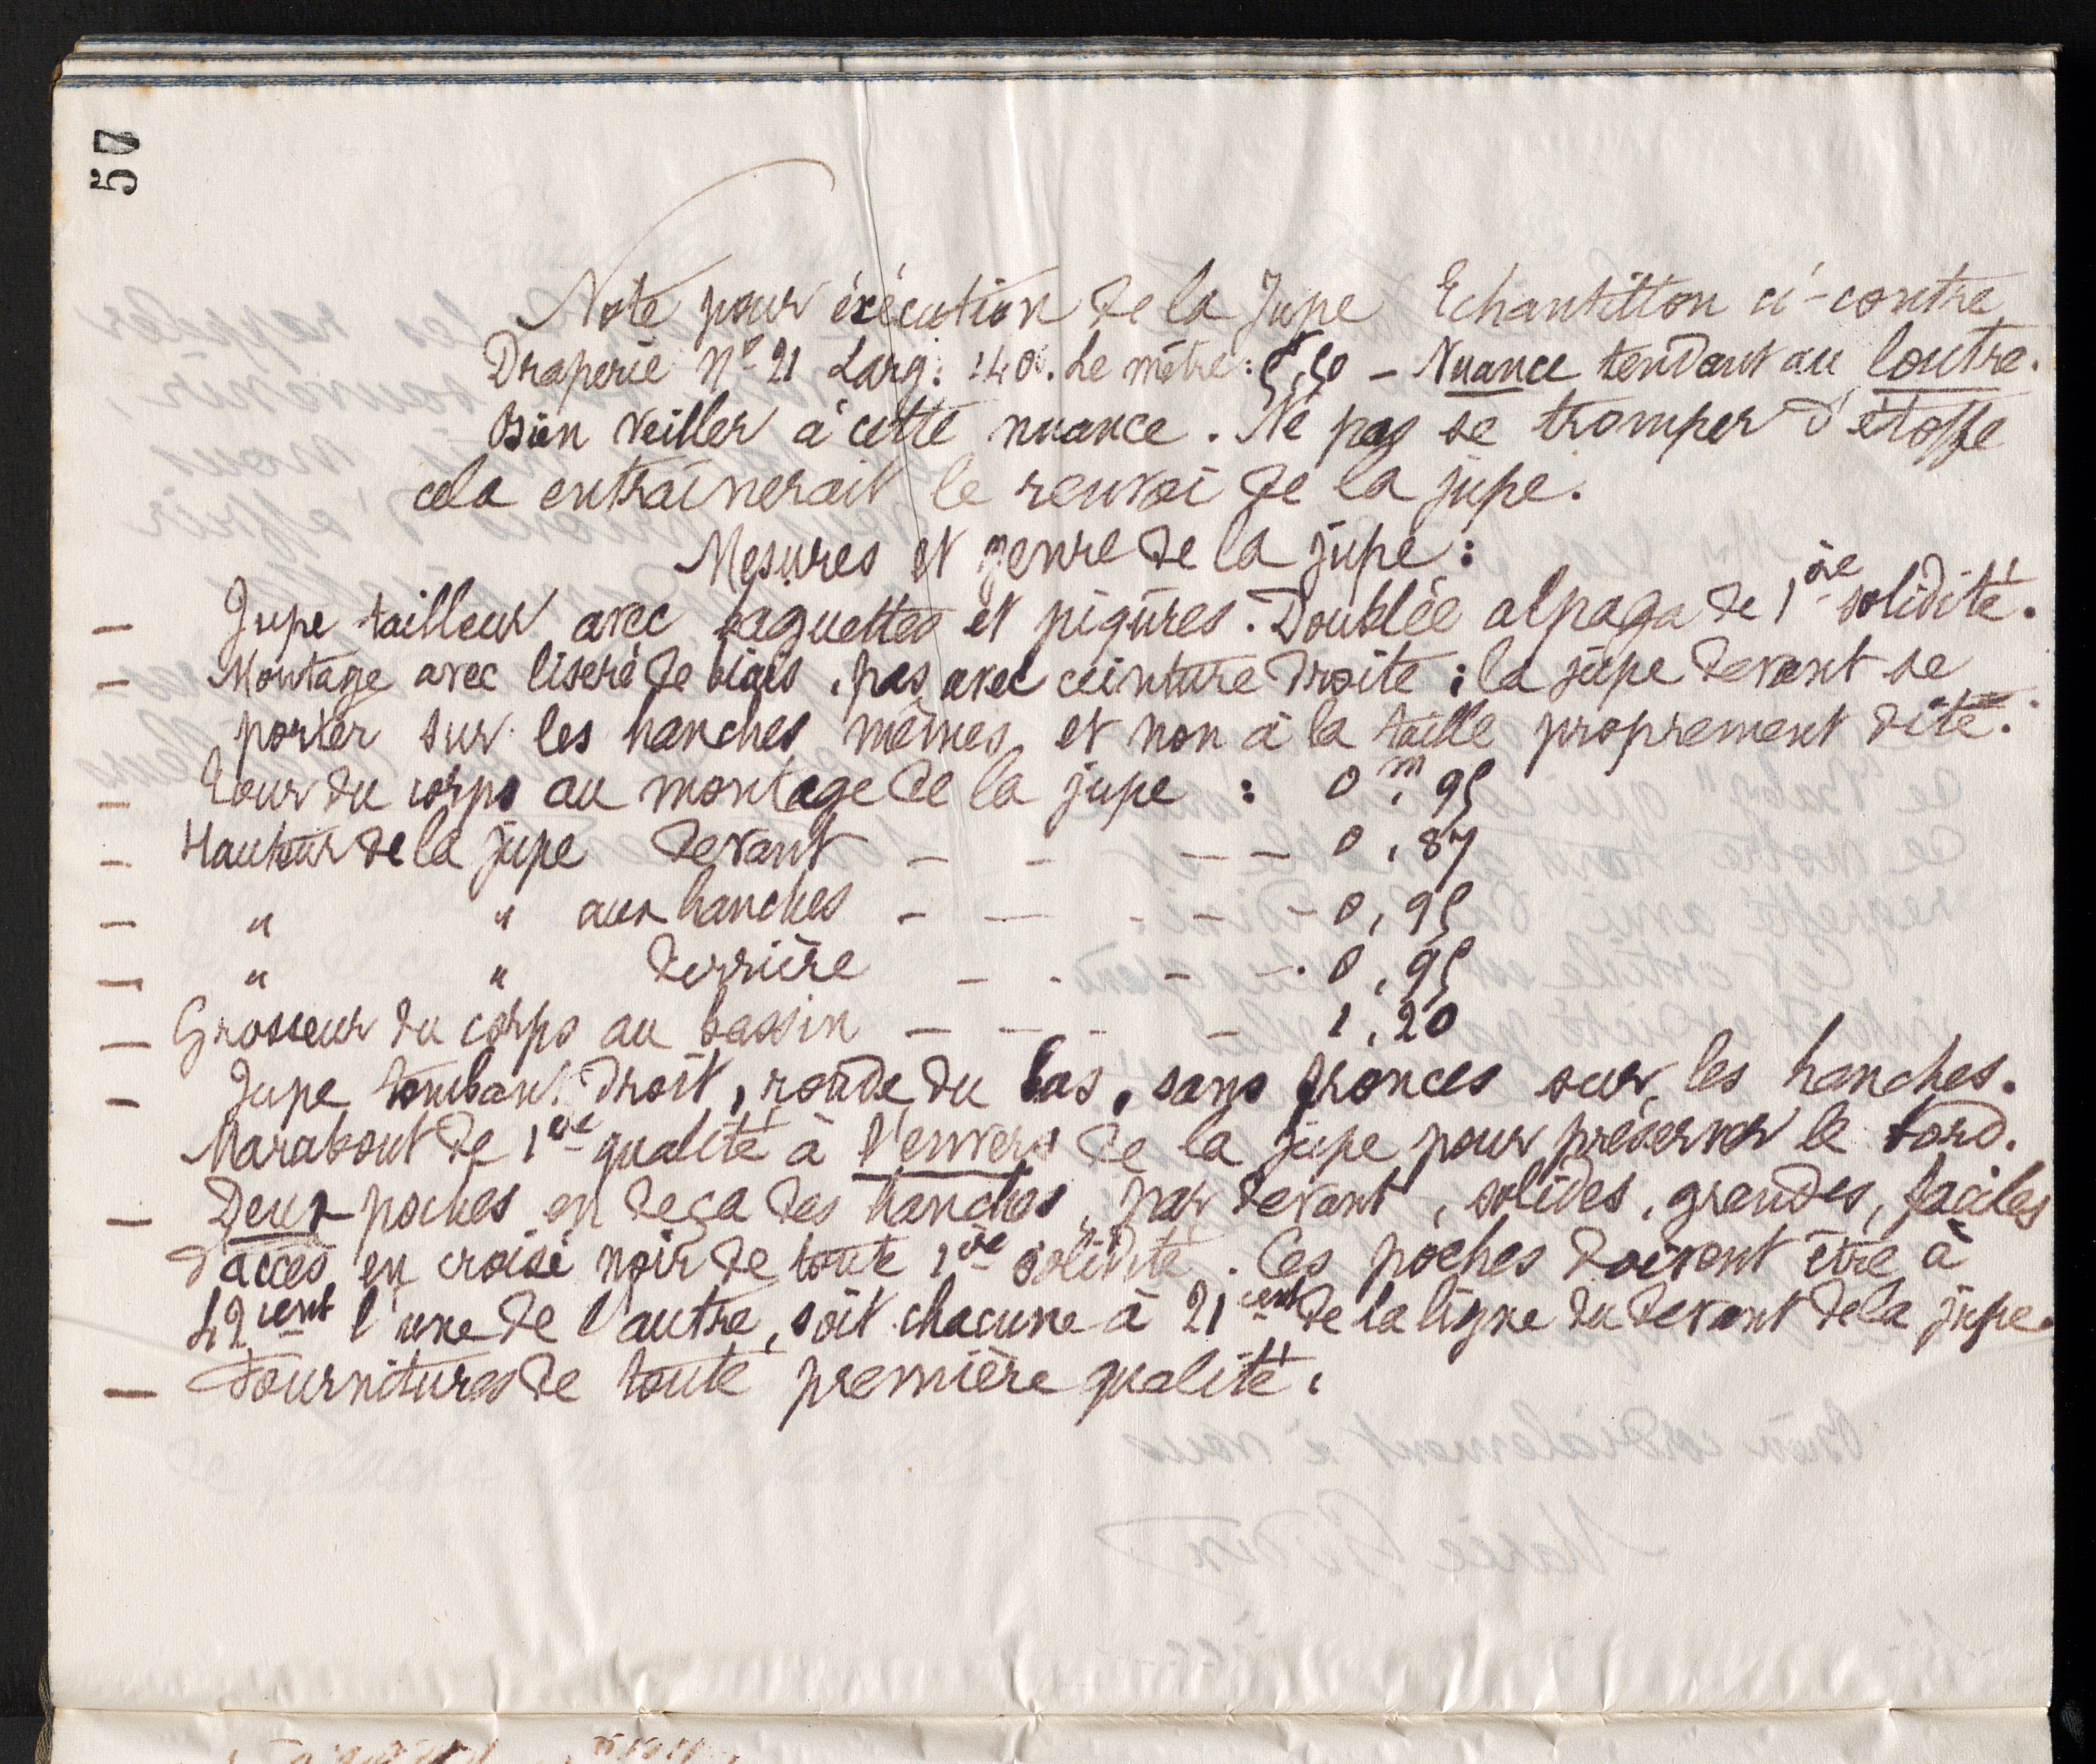 57
Note pour éxécution de la Jupe Echantillon ci-contre
Draperie No 21 Larg: 140. Le mètre: 5f,50 - Nuance tendant au loutre.
Bien veiller à cette nuance. Ne pas se tromper d'étoffe
cela entraînerait le renvoi de la jupe.
Mesures et genre de la jupe:
— Jupe tailleur avec baguettes et piqûres. Doublée alpaga de 1ère solidité.
— Montage avec liseré de biais, pas avec ceinture droite; la jupe devant se
porter sur les hanches mêmes et non à la taille proprement dite.
— Tour du corps au montage de la jupe : 0m,95
— Hauteur de la jupe devant - - - - 0,87
— " " aux hanches - - - - - 0,95
— " " derrière - - - - 0,95
— Grosseur du corps au bassin - - - - 1,20
— Jupe tombant droit, ronde du bas, sans fronces sur les hanches.
Marabout de 1ère qualité à l'envers de la jupe pour préserver le bord.
— Deux poches en deça des hanches, par devant, solides, grandes, faciles
d'accès en croisé noir de toute 1ère solidité. Ces poches doivent être à
42 cent l'une de l'autre, soit chacune à 21 cent de la ligne du devant de la jupe.
— Fournitures de toute première qualité.